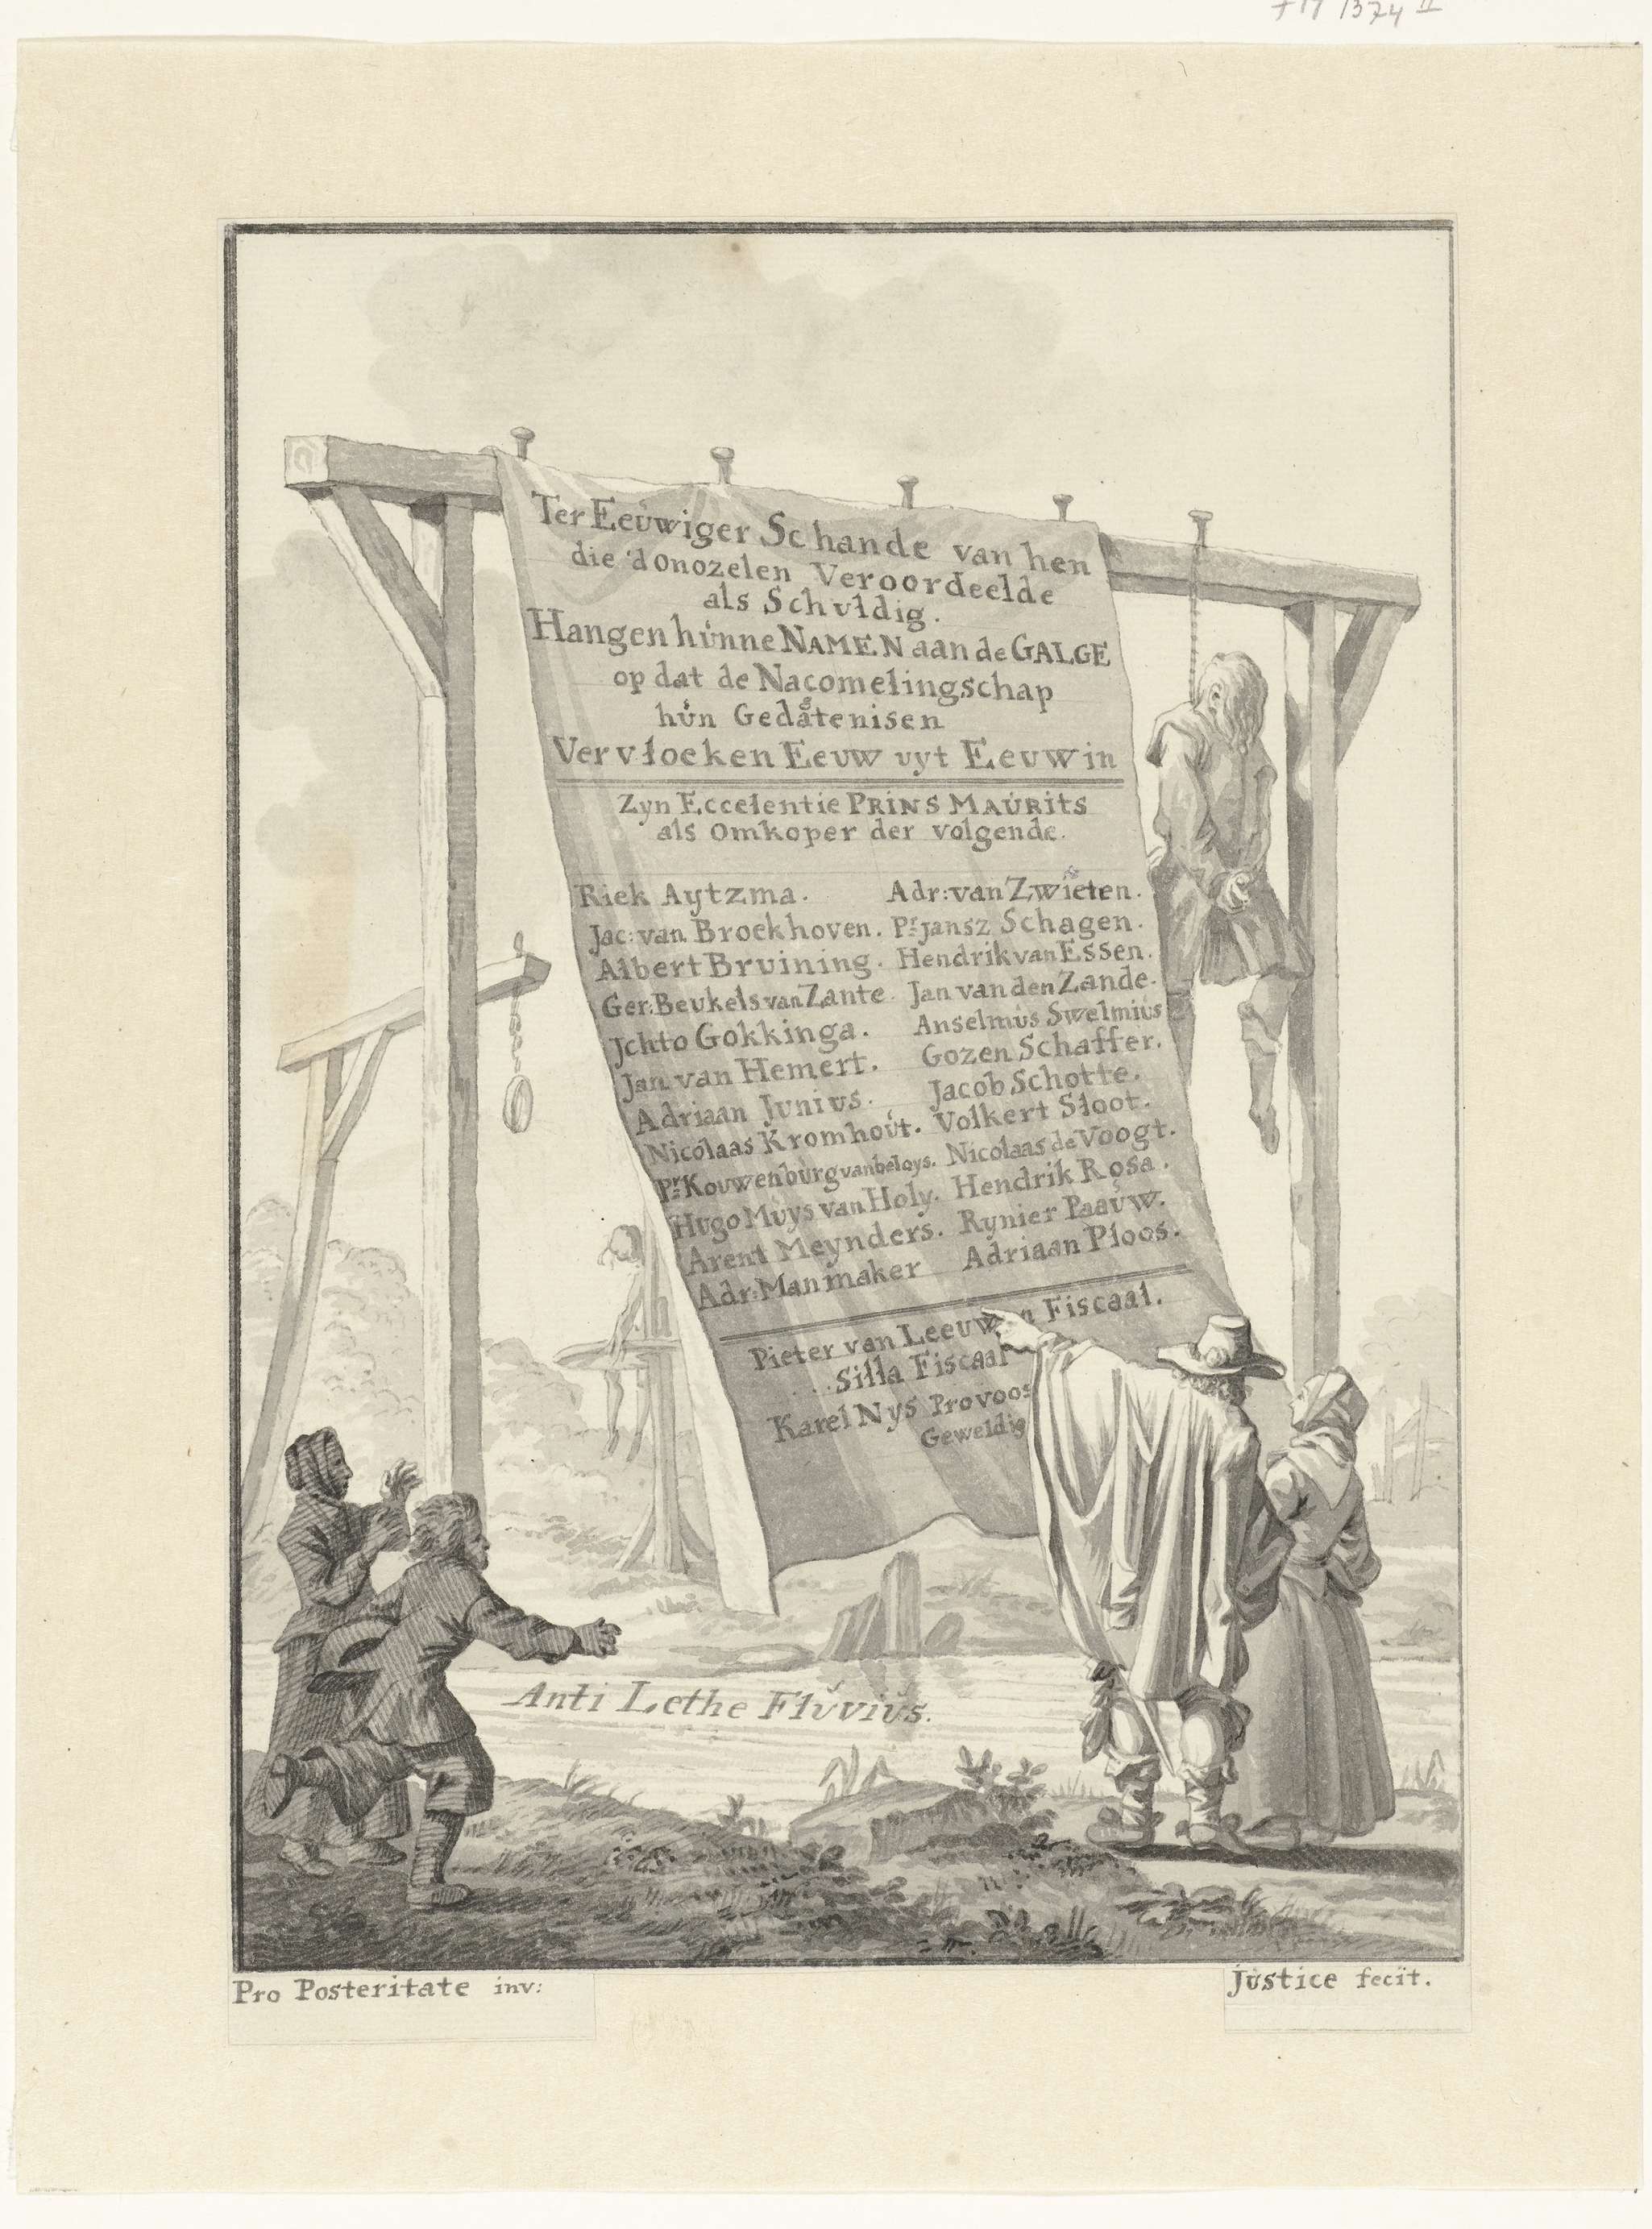 Ter Eeuwiger Schande van hen
die 'donozelen Veroordeelde
als Schuldig.
Hangen hunne NAMEN aan de GALGE
op dat de Nacomelingschap
hun Gedatenisen
Vervloeken Eeuw uyt Eeuw in
Zyn Eccelentie PRINS MAURITS
als omkoper der volgende.
Riek Aytzma. Adr: van Zwieten.
Jac: van Broekhoven. Pr. jansz Schagen.
Albert Bruining. Hendrik van Essen.
Ger: Beukels van Zante. Jan van den Zande.
Jchto Gokkinga. Anselmus Swelmius
Jan van Hemert. Gozen Schaffer.
Adriaan Junius. Jacob Schotte.
Nicolaas Kromhout. Volkert Sloot.
Pr. Kouwenburg van beloys. Nicolaas de Voogt.
Hugo Muys van Holy. Hendrik Rosa.
Arent Meynders. Rynier Paauw.
Adr: Manmaker Adriaan Ploos.
Pieter van Leeuwen Fiscaal.
Silla Fiscaal
Karel Nys Provoos
Geweldig
Anti Lethe Fluvius.
Pro Posteritate inv:
Justice fecit.